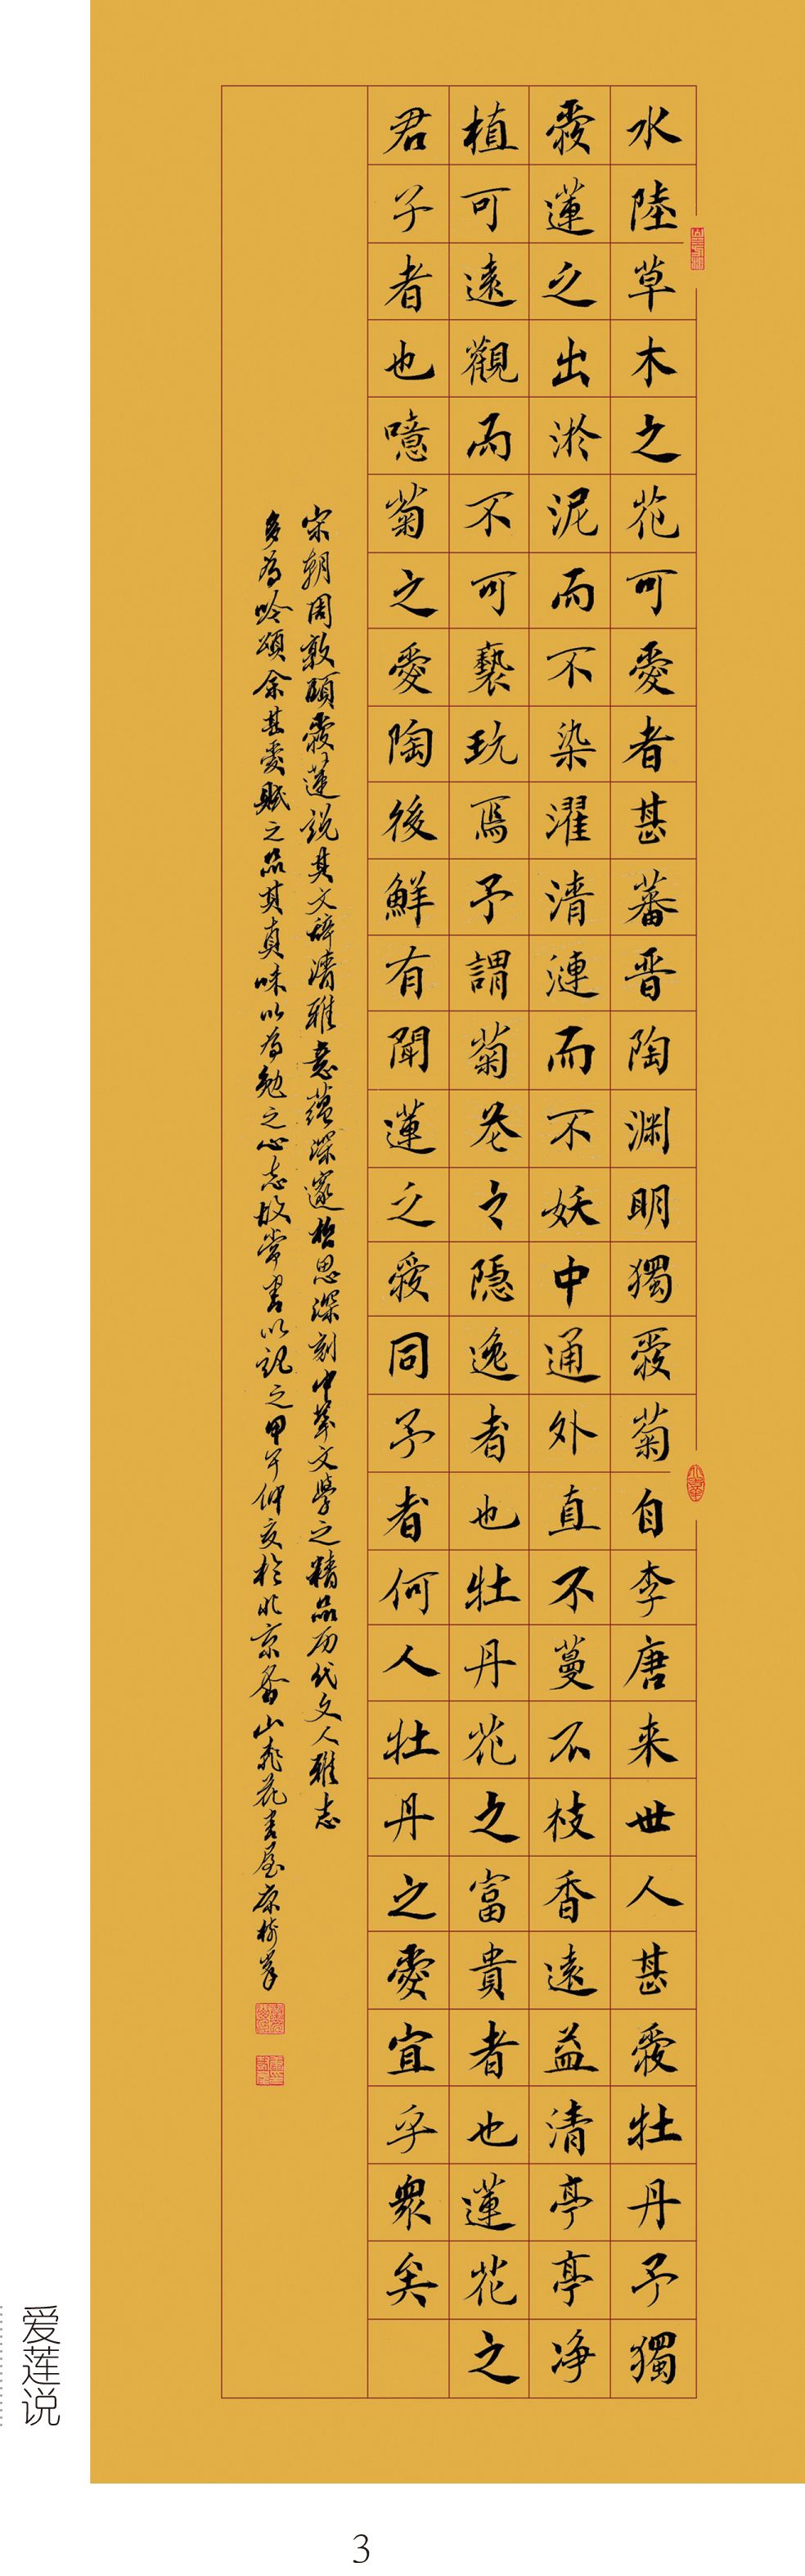 水陸草木之花可愛者甚蕃晋陶渊明獨愛菊自李唐来世人甚愛牡丹予獨
愛蓮之出淤泥而不染濯清漣而不妖中通外直不蔓不枝香遠益清亭亭净
植可遠觀而不可褻玩焉予謂菊花之隱逸者也牡丹花之富貴者也蓮花之
君子者也噫菊之愛陶後鮮有聞蓮之愛同予者何人牡丹之愛宜乎衆矣
宋朝周敦頤愛蓮説其文辞清雅意蘊深邃哲思深刻中華文學之精品历代文人雅志
多為吟頌余甚愛賦之品其真味以為勉之心志故常書以記之甲午仲夏於北京香山花書屋
爱莲说
3